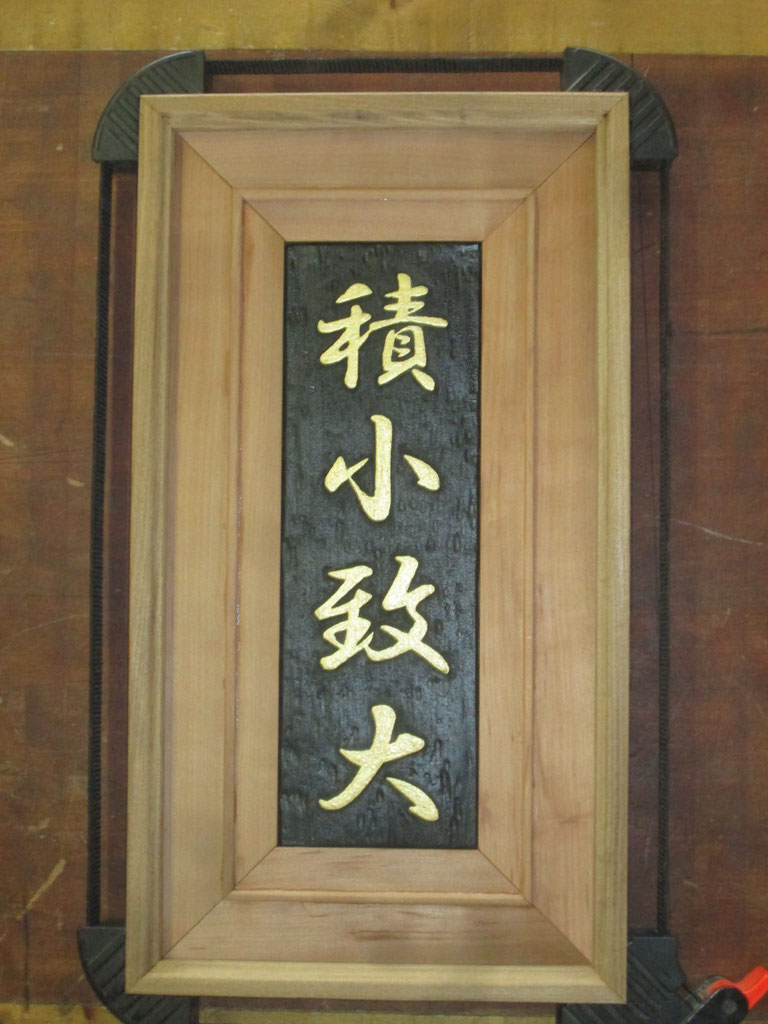 積小致大